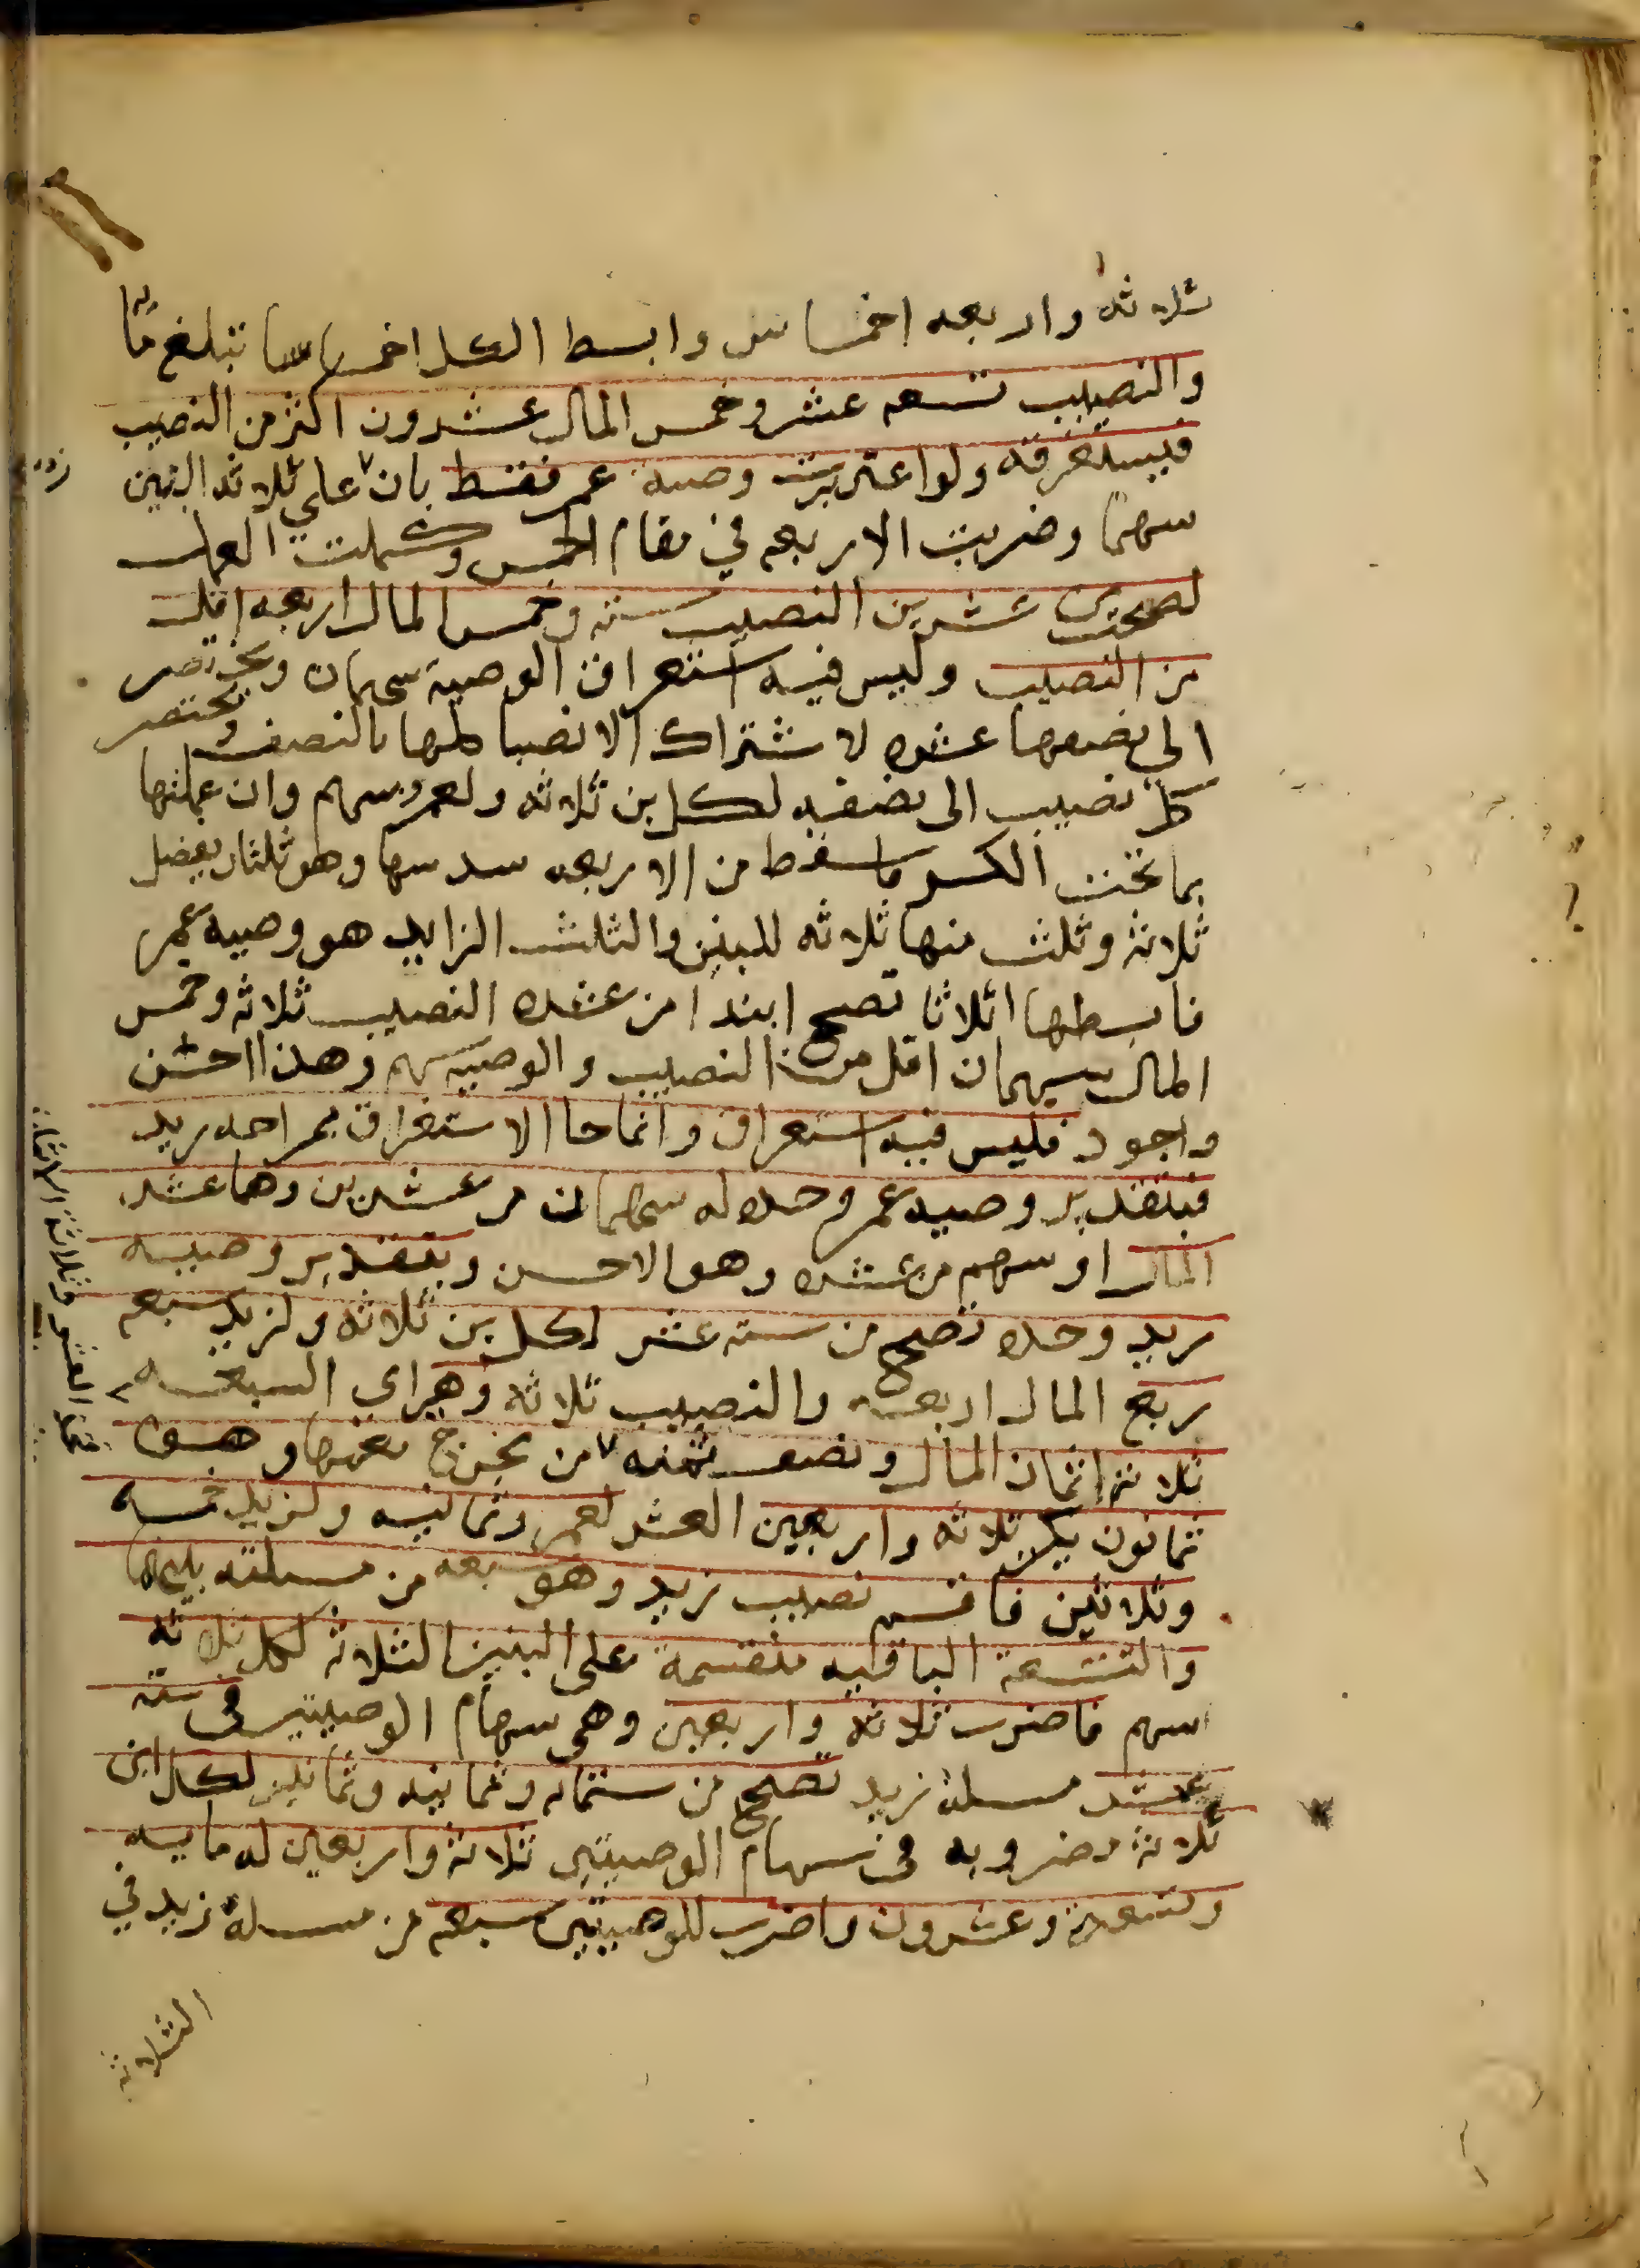 ثلاثة واربعه اخماس وابسط الكل اخماسا تبلغ
والنصيب تسعه عشر وخمس المال عشرون اكثر من النصيب
فيستغرقه ولو اعتبرت وصية عمرو فقط بان على ثلاثة البنين
سهما وضربت الاربعه في مقام الخمس وكملت العمل
لصحت من عشرين النصيب سته وخمس المال اربعه اقل
من النصيب وليس فيه استغراق الوصية سهمان ويختصر
الى نصفها عشره لاشتراك الانصبا كلها بالنصف ويختصر
كل نصيب الى نصفه لكل ابن ثلاثة ولعمرو سهم وان عملتها
بما تحت الكسر فاسقط من الاربعه سدسها وهو ثلثان يفضل
ثلاثة وثلث منها ثلاثه للبنين والثلث الزايد هو وصيه عمرو
فابسطها اثلاثا تصح ابتدا من عشره النصيب ثلاثه وخمس
المال سهمان اقل من النصيب والوصية سهم وهذا احسن
واجود فليس فيه استغراق وانما جا الاستغراق بمزاحمه زيد
فبتقدير وصيه عمرو وحده له سهمان من عشرين وهما عشر
المال او سهم من عشره وهو الاحسن وبتقدير وصيه
زيد وحده تصح من سته عشر لكل ابن ثلاثة ولزيد سبعه
ربع المال اربعة والنصيب ثلاثة وهي اي السبعه
ثلاثة اثمان المال ونصف ثمنه من مخرج
ثمانون يكن ثلاثة واربعين العشر لعمرو ثمانيه ولزيد خمسه
وثلاثين فاقسم نصيب زيد وهو سبعه من مسلته بينهما
والتسعة الباقيه منقسمة على البنين الثلاثه لكل ثلاثة
اسهم فاضرب ثلاثة واربعين وهي سهام الوصيتين في ستة
عشر مسلة زيد تصح من ستمايه وثمانيه وثمانين لكل ابن
ثلاثة مضروبه في سهام الوصيتين ثلاثة واربعين له مايه
وتسعة وعشرون واضرب للوصيتين سبعه من مسلة زيد في
الثلاثة